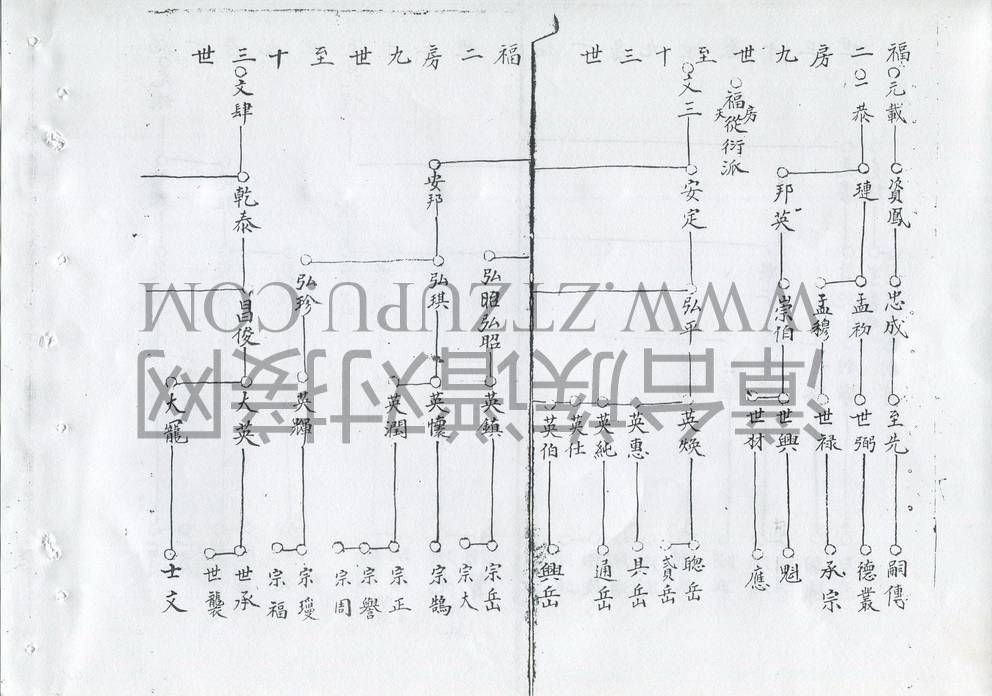 福二房九世至十三世
元載
資鳳
忠成
至先
嗣傳
一恭
璉
孟初
世弼
德叢
孟穆
世祿
承宗
邦英
崇伯
世興
魁
世材
應
福從衍派
天房
文三
安定
弘平
英煥
聰岳
貳岳
英惠
具岳
英純
通岳
英仕
英伯
興岳
福二房九世至十三世
弘昭弘昭
英鎮
宗岳
宗大
安邦
弘琪
英懷
宗鵠
英潤
宗正
宗譽
宗周
弘珍
英輝
宗瓊
宗福
文肆
乾泰
昌俊
大英
世承
世襲
大寵
士文
WWW.ZTZUPU.COM
谭台族谱对接网